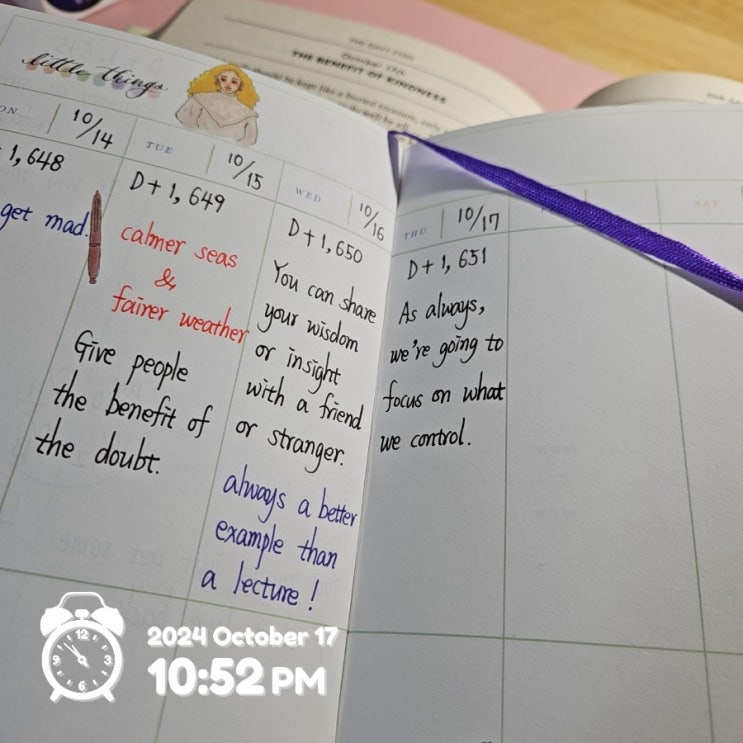 THE DAILY STOIC
October 17th
THE BENEFIT OF KINDNESS
little things
10/14
1,648
get mad.
TUE
10/15
D+1,649
calmer seas
&
fairer weather
Give people
the benefit of
the doubt.
WED
10/16
D+1,650
You can share
your wisdom
or insight
with a friend
or stranger.
always a better
example than
a lecture!
THU
10/17
D+1,651
As always,
we're going to
focus on what
we control.
SAT
12
3
6
9
2024 October 17
10:52 PM